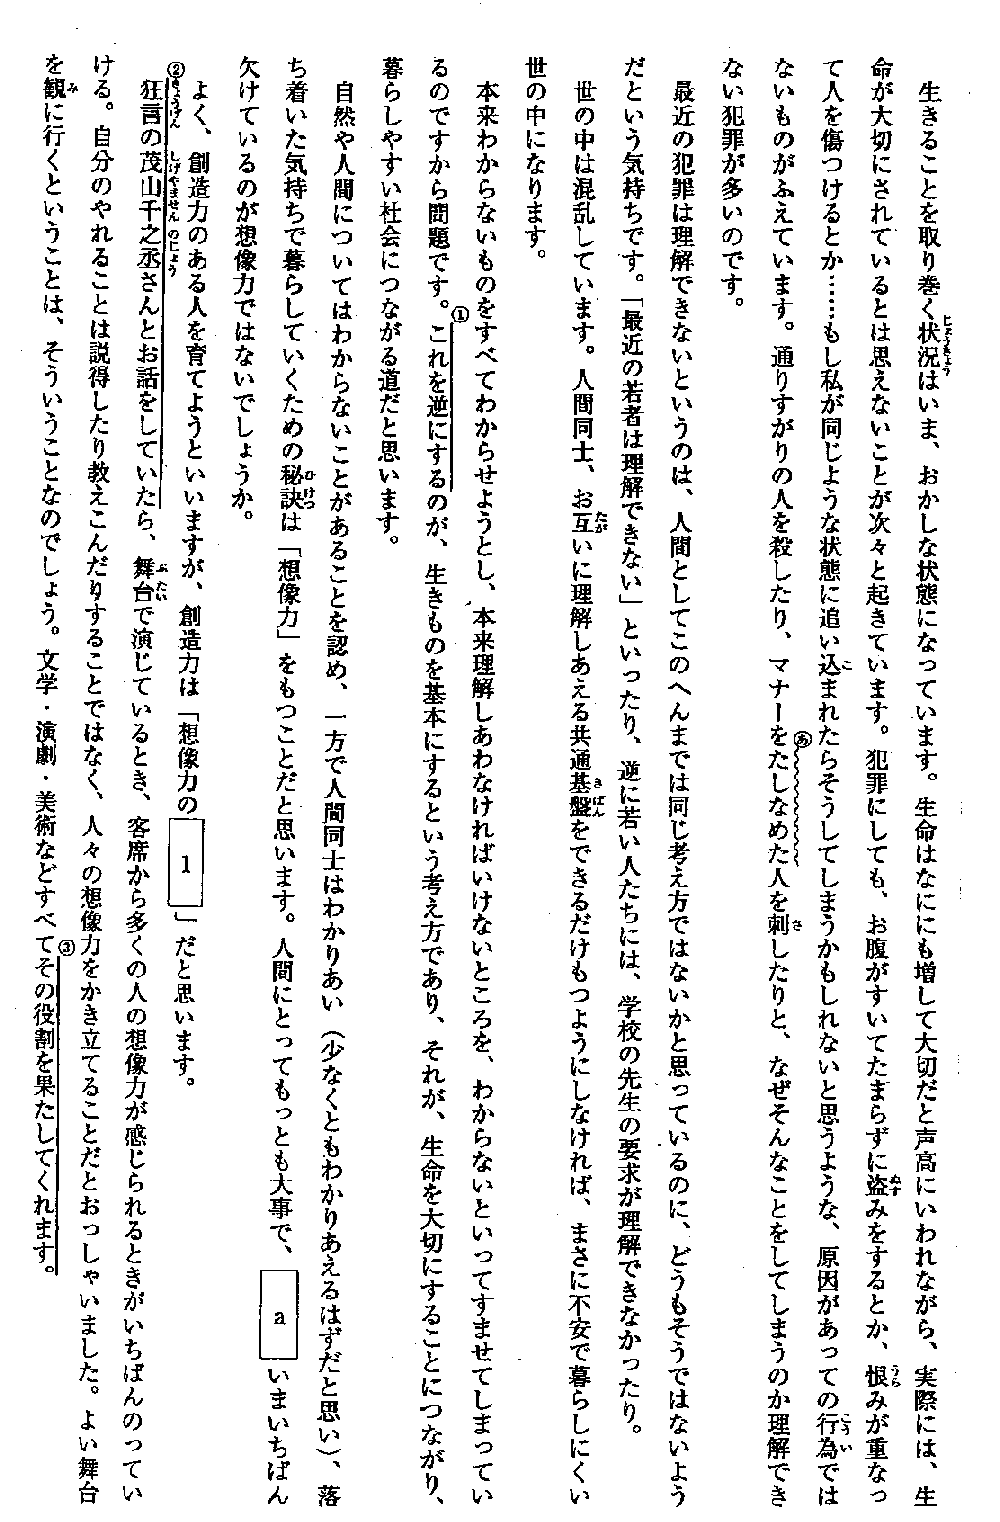 生きることを取り巻く状況はいま、おかしな状態になっています。生命はなににも増して大切だと声高にいわれながら、実際には、生
命が大切にされているとは思えないことが次々と起きています。犯罪にしても、お腹がすいてたまらずに盗みをするとか、恨みが重なっ
て人を傷つけるとか……もし私が同じような状態に追い込まれたらそうしてしまうかもしれないと思うような、原因があっての行為では
ないものがふえています。通りすがりの人を殺したり、マナーをたしなめた人を刺したりと、なぜそんなことをしてしまうのか理解でき
ない犯罪が多いのです。
最近の犯罪は理解できないというのは、人間としてこのへんまでは同じ考え方ではないかと思っているのに、どうもそうではないよう
だという気持ちです。「最近の若者は理解できない」といったり、逆に若い人たちには、学校の先生の要求が理解できなかったり。
世の中は混乱しています。人間同士、お互いに理解しあえる共通基盤をできるだけもつようにしなければ、まさに不安で暮らしにくい
世の中になります。
本来わからないものをすべてわからせようとし、本来理解しあわなければいけないところを、わからないといってすませてしまってい
るのですから問題です。①これを逆にするのが、生きものを基本にするという考え方であり、それが、生命を大切にすることにつながり、
暮らしやすい社会につながる道だと思います。
自然や人間についてはわからないことがあることを認め、一方で人間同士はわかりあい（少なくともわかりあえるはずだと思い）、落
ち着いた気持ちで暮らしていくための秘訣は「想像力」をもつことだと思います。人間にとってもっとも大事で、 a いまいちばん
欠けているのが想像力ではないでしょうか。
よく、創造力のある人を育てようといいますが、創造力は「想像力の 1 」だと思います。
②狂言の茂山千之丞さんとお話をしていたら、舞台で演じているとき、客席から多くの人の想像力が感じられるときがいちばんのってい
ける。自分のやれることは説得したり教えこんだりすることではなく、人々の想像力をかき立てることだとおっしゃいました。よい舞台
を観に行くということは、そういうことなのでしょう。文学・演劇・美術などすべて③その役割を果たしてくれます。